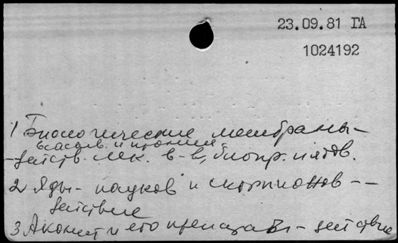 23.09.81 ГА
1024192
1 Биологические мембраны-
всасыв. и проник
-действ. лек. в-в, биопр. и ядов.
2 Яды- пауков и скорпионов --
действие
3 Аконит и его препараты - действие